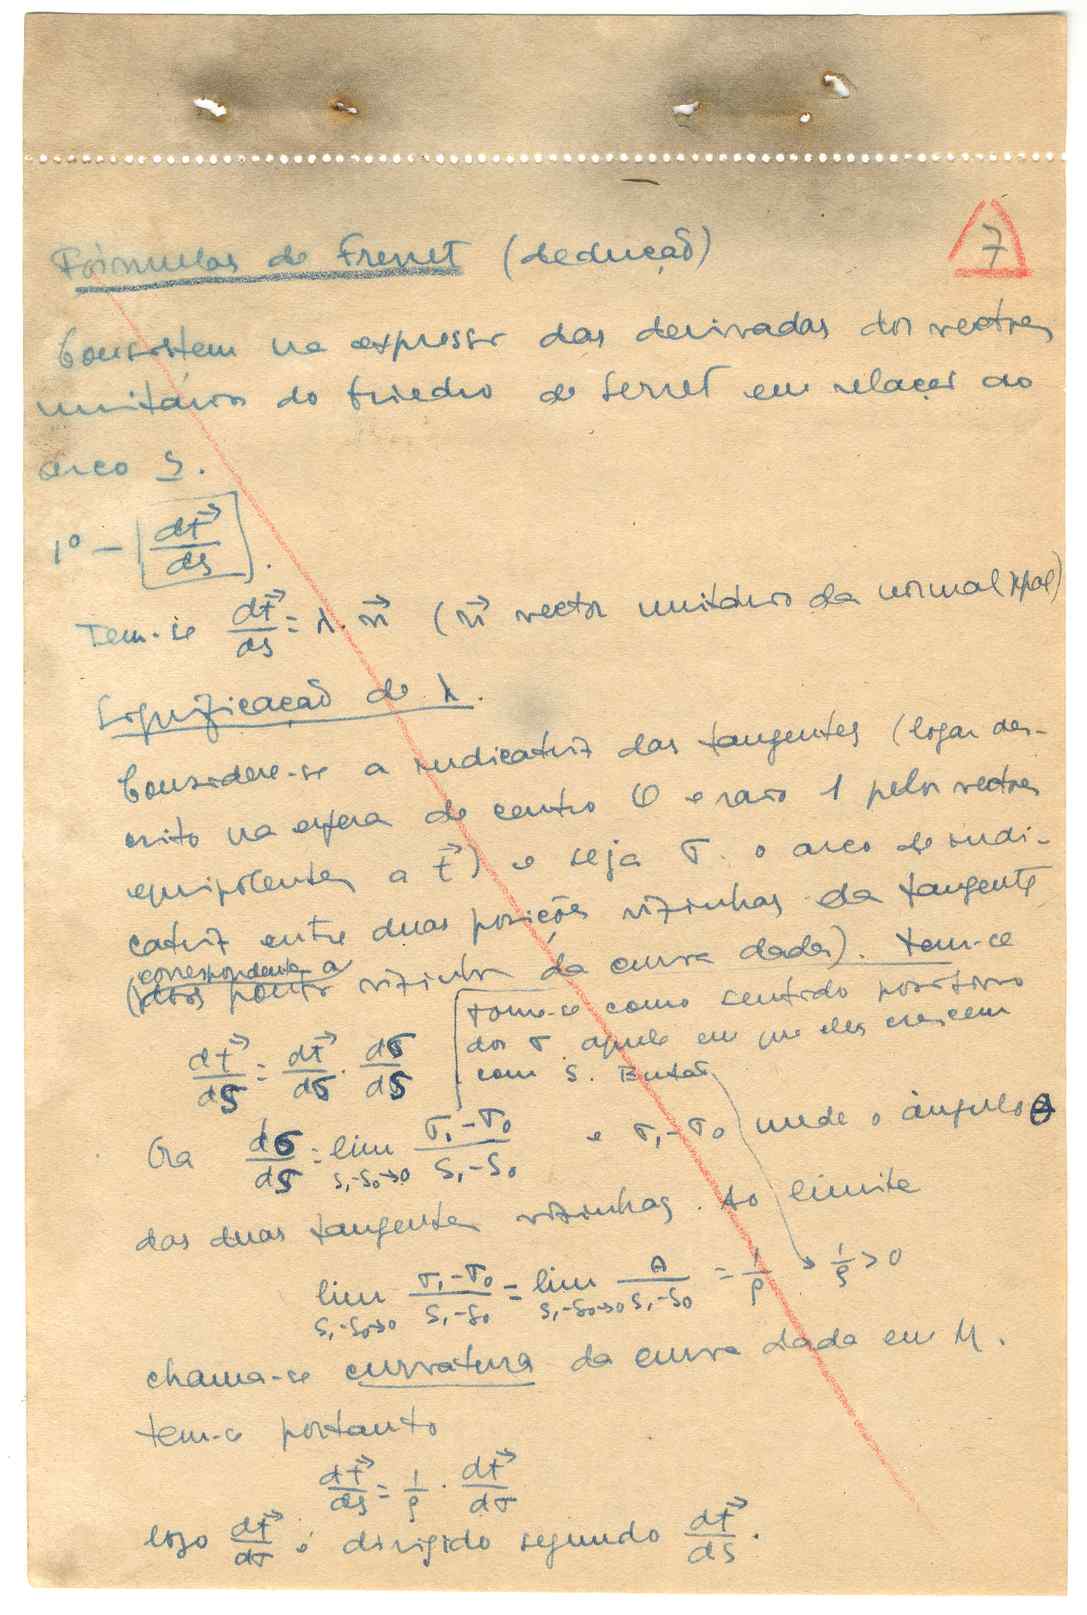 7
Fórmulas de Frenet (dedução)
Consistem na expressão das derivadas dos vectores
unitários do triedro de Serret em relação ao
arco s.
1º — dt⃗/ds.
Tem-se dt⃗/ds = λ. n⃗ (n⃗ vector unitário da normal ppal)
Significação de λ.
Considere-se a indicatriz das tangentes (logar des-
crito na esfera de centro O e raio 1 pelos vectores
equipolentes a t⃗) e seja σ. o arco de indi-
catriz entre duas posições vizinhas da tangente
(correspondentes a
pontos vizinhos da curva dada). Tem-se
dt⃗/ds = dt⃗/dσ . dσ/ds
tome-se como sentido positivo
dos σ aquele em que eles crescem
com s. Então
Ora dσ/ds = lim s₁-s₀→0 σ₁-σ₀/s₁-s₀ e σ₁-σ₀ mede o ângulo θ
das duas tangentes vizinhas. Ao limite
lim s₁-s₀→0 σ₁-σ₀/s₁-s₀ = lim s₁-s₀→0 θ/s₁-s₀ = 1/ρ → 1/ρ > 0
chama-se curvatura da curva dada em M.
tem-se portanto
dt⃗/ds = 1/ρ . dt⃗/dσ
logo dt⃗/dσ é dirigido segundo dt⃗/ds.